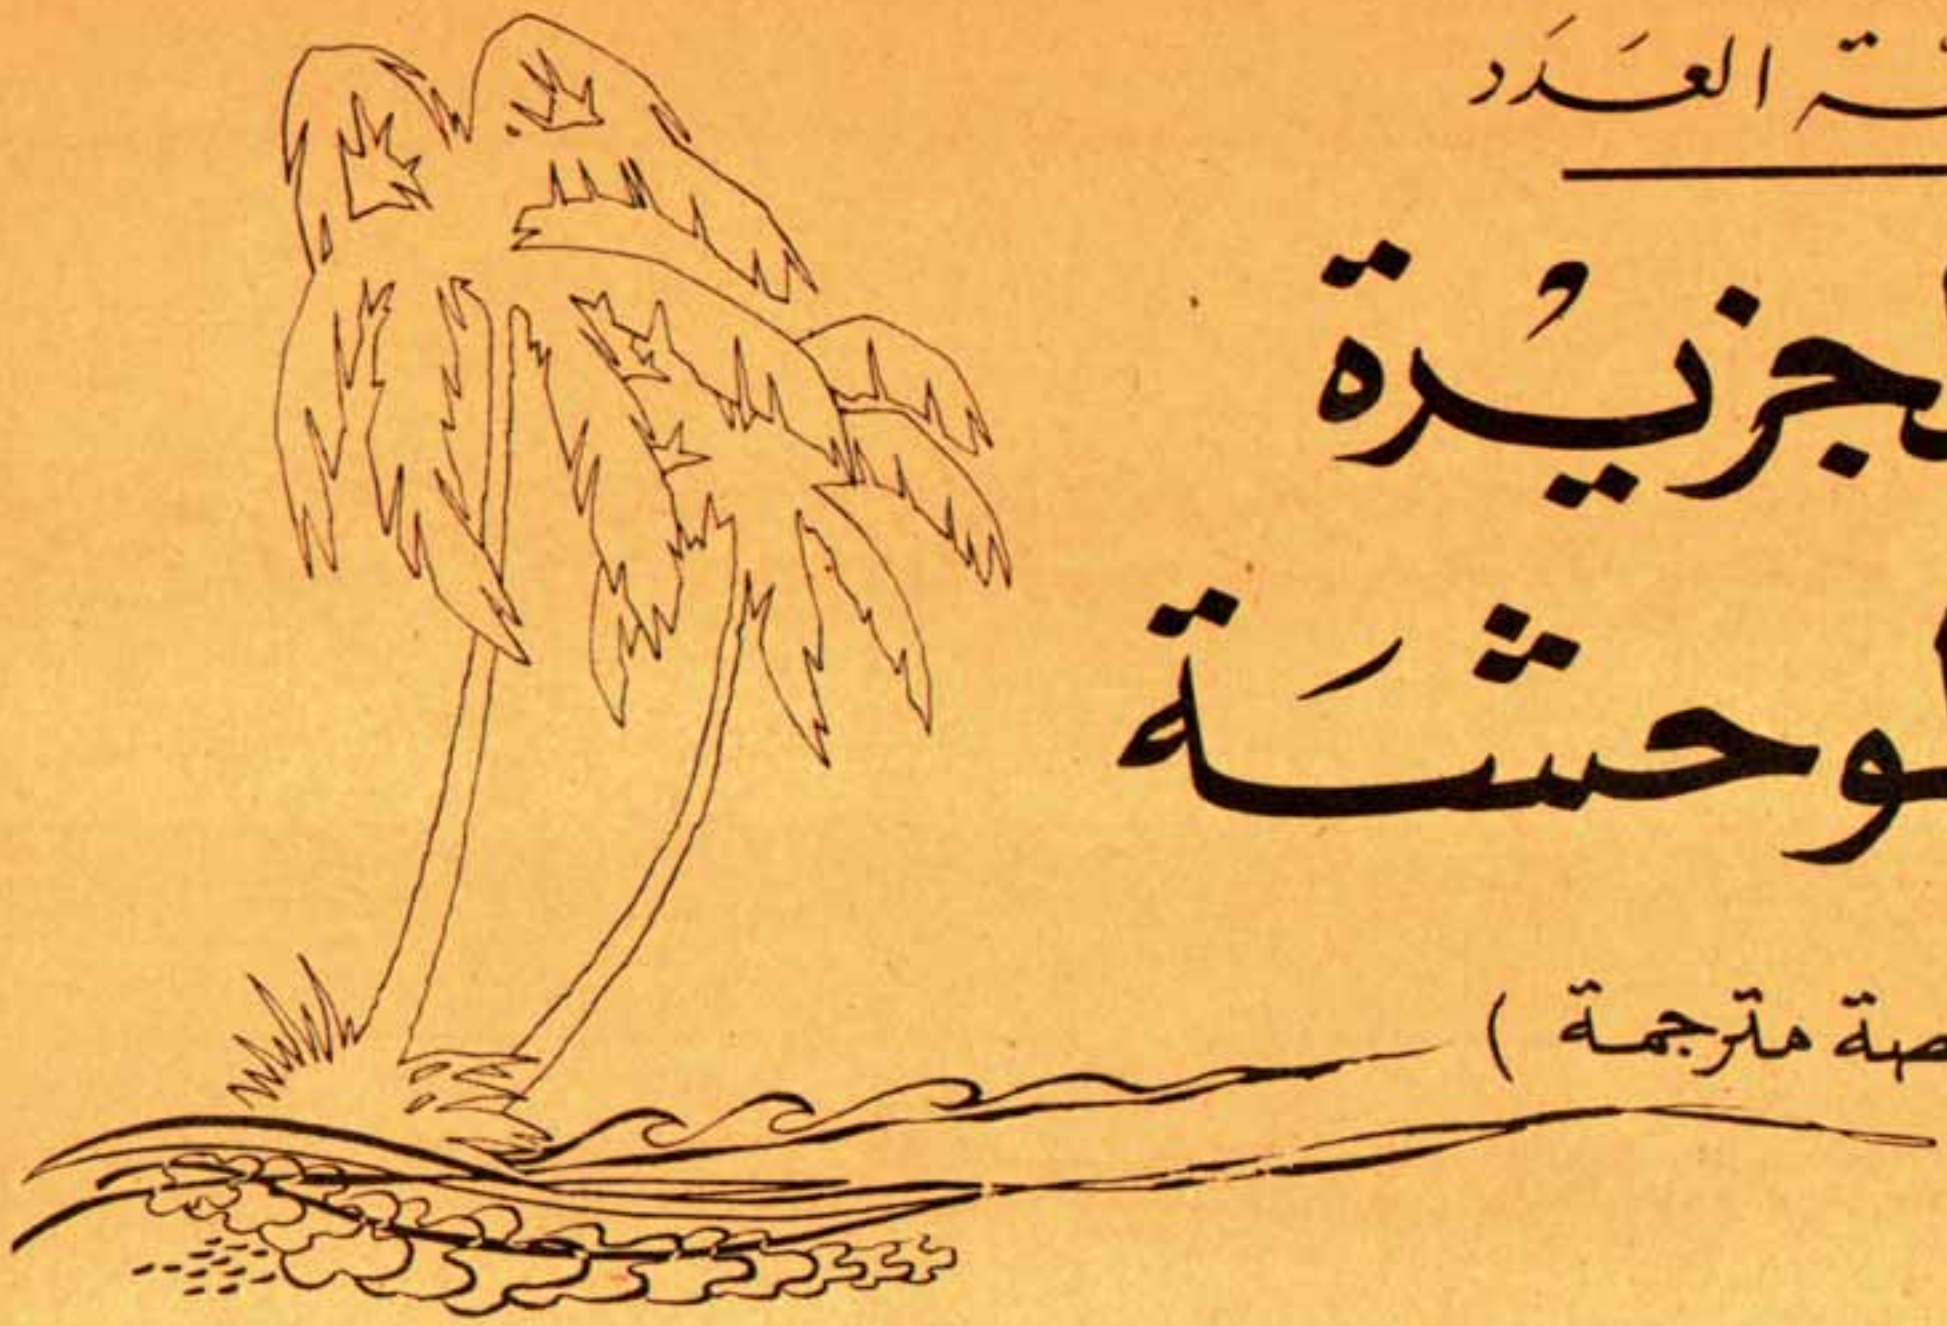 ـة العَدَد
لجزيْرة
لوحشَة
صة مترجمة )